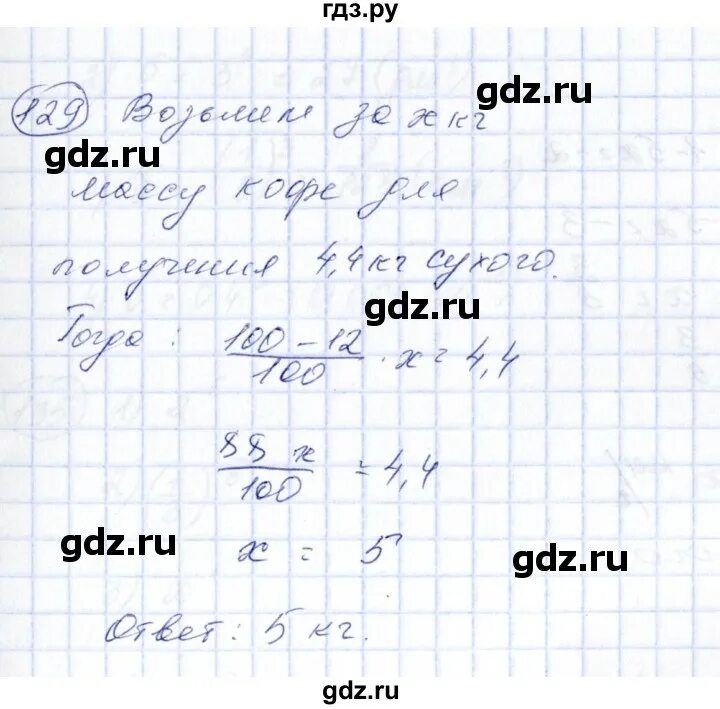 гдз.ру
129 Возьмем за x кг
gdz.ru
массу кофе для
получения 4,4 кг сухого.
gdz.ru
Тогда: (100 - 12)/100 · x = 4,4
88 x/100 = 4,4
gdz.ru
x = 5
gdz.ru
Ответ: 5 кг.
gdz.ru